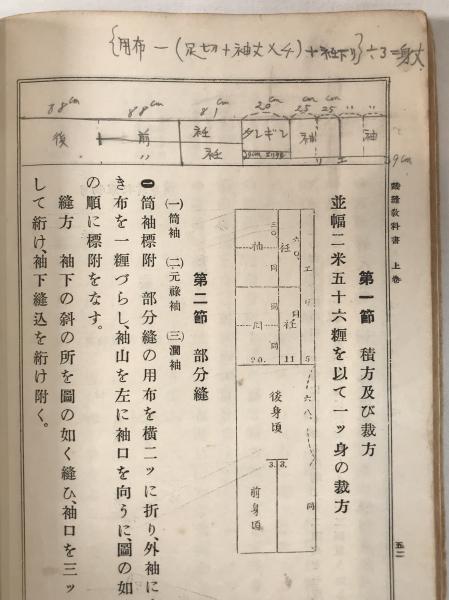 {用布－(足切＋袖丈×4)＋衽下リ}÷3＝身丈
88cm 88cm 81cm 20cm 25cm 25cm 〃 〃
後 前 衽 袖 袖
〃 衽 エリ
9cm
裁縫敎科書 上卷
第一節 積方及び裁方
並幅二米五十六糎を以て一ッ身の裁方
三〇、 六〇、 エ
袖 衽 リ
同 同
袖 衽
同 同
20. 11 5
後身頃 六八、
3. 3. 同
前身頃
第二節 部分縫
(一)筒袖 (二)元祿袖 (三)濶袖
❶筒袖標附 部分縫の用布を横二ッに折り、外袖に
き布を一糎づらし、袖山を左に袖口を向うに、圖の如
の順に標附をなす。
縫方 袖下の斜の所を圖の如く縫ひ、袖口を三ッ
して絎け、袖下縫込を絎け附く。
五二